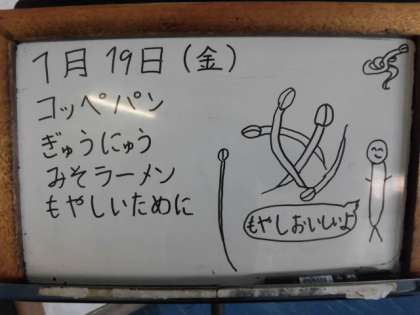 1月19日(金)
コッペパン
ぎゅうにゅう
みそラーメン
もやしいために
もやしおいしいよ